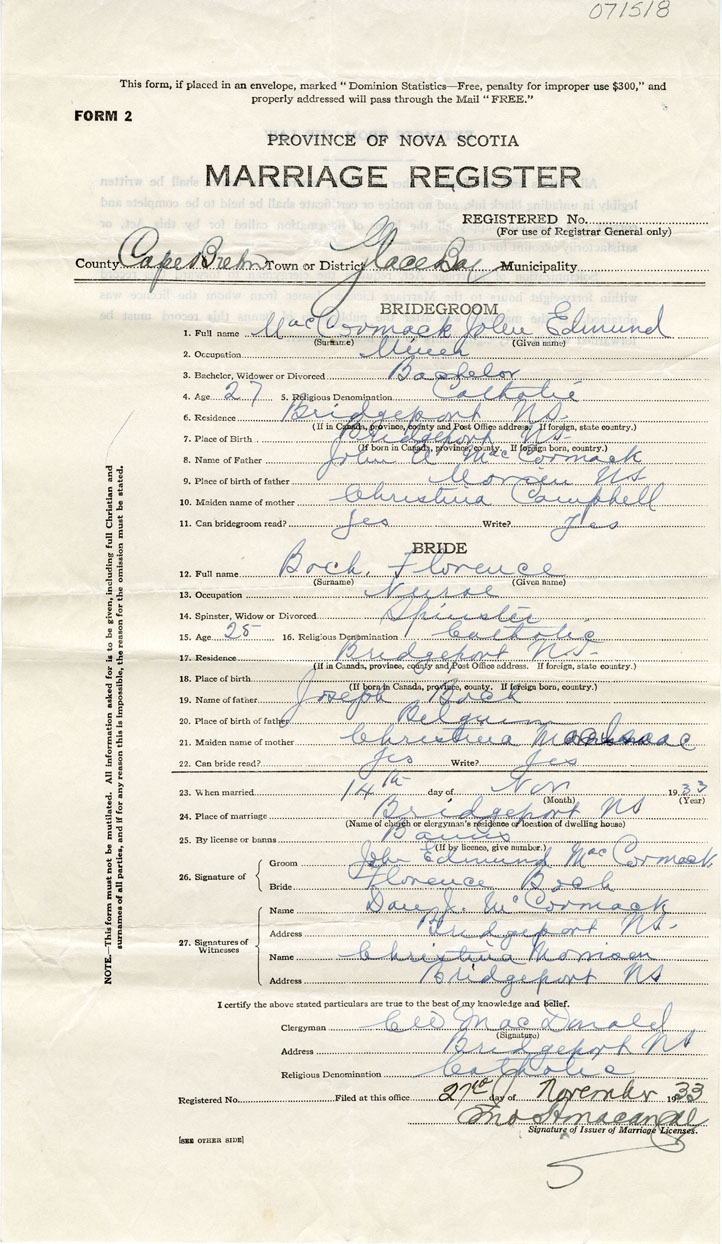 071518
This form, if placed in an envelope, marked "Dominion Statistics—Free, penalty for improper use $300," and
properly addressed will pass through the Mail "FREE."
FORM 2
PROVINCE OF NOVA SCOTIA
MARRIAGE REGISTER
REGISTERED No.
(For use of Registrar General only)
County Cape Breton Town or District Glace Bay Municipality
BRIDEGROOM
1. Full name MacCormack John Edmund
(Surname) (Given name)
2. Occupation Miner
3. Bachelor, Widower or Divorced Bachelor
4. Age 27 5. Religious Denomination Catholic
6. Residence Bridgeport NS.
(If in Canada, province, county and Post Office address. If foreign, state country.)
7. Place of Birth Bridgeport NS.
(If born in Canada, province, county. If foreign born, country.)
8. Name of Father John A MacCormack
9. Place of birth of father Morien NS
10. Maiden name of mother Christina Campbell
11. Can bridegroom read? Yes Write? Yes
BRIDE
12. Full name Boch, Florence
(Surname) (Given name)
13. Occupation Nurse
14. Spinster, Widow or Divorced Spinster
15. Age 25 16. Religious Denomination Catholic
17. Residence Bridgeport NS-
(If in Canada, province, county and Post Office address. If foreign, state country.)
18. Place of birth
(If born in Canada, province, county. If foreign born, country.)
19. Name of father Joseph Boch
20. Place of birth of father Belgium
21. Maiden name of mother Christina MacIsaac
22. Can bride read? Yes Write? Yes
23. When married 14th day of Nov 1933
(Month) (Year)
24. Place of marriage Bridgeport NS
(Name of church or clergyman's residence or location of dwelling house)
25. By license or banns Banns
(If by licence, give number.)
26. Signature of Groom John Edmund MacCormack
Bride Florence Boch
27. Signatures of Witnesses
Name Dan J. McCormack
Address Bridgeport NS-
Name Christina Morrison
Address Bridgeport NS
I certify the above stated particulars are true to the best of my knowledge and belief.
Clergyman MacDonald
(Signature)
Address Bridgeport NS
Religious Denomination Catholic
Registered No. Filed at this office 27th day of November 1933
Signature of Issuer of Marriage Licenses.
[SEE OTHER SIDE]
NOTE.—This form must not be mutilated. All information asked for is to be given, including full Christian and
surnames of all parties, and if for any reason this is impossible, the reason for the omission must be stated.